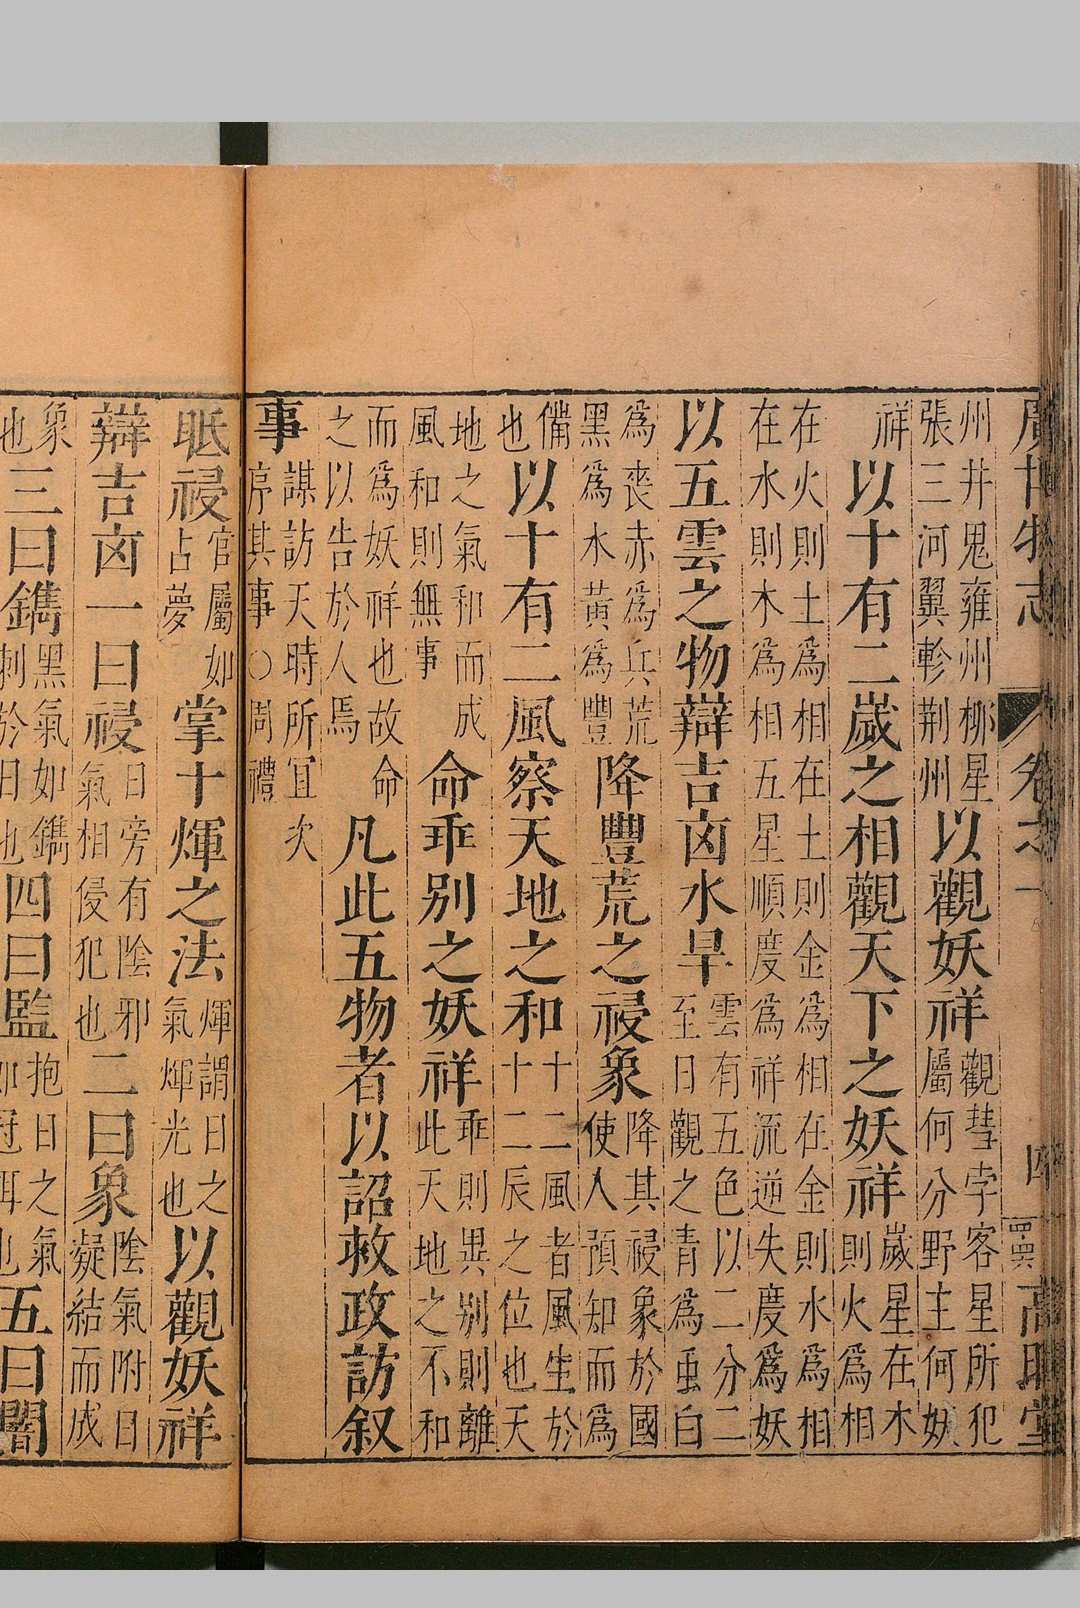 廣博物志 卷之一 四 高暉堂
州井鬼雍州柳星張三河翼軫荆州以觀妖祥觀彗孛客星所犯屬何分野主何妖
祥以十有二歲之相觀天下之妖祥歲星在木則火爲相
在火則土爲相在土則金爲相在金則水爲相在水則木爲相五星順度爲祥流逆失度爲妖
以五雲之物辯吉凶水旱雲有五色以二分二至日觀之青爲虫白
爲喪赤爲兵荒黑爲水黃爲豐降豐荒之祲象降其祲象於國使人預知而爲
備也以十有二風察天地之和十二風者風生於十二辰之位也天
地之氣和而成風和則無事命乖别之妖祥乖則異别則離此天地之不和
而爲妖祥也故命之以告於人焉凡此五物者以詔救政訪叙
事謀訪天時所宜次序其事○周禮
眡祲官屬如占夢掌十煇之法煇謂日之氣煇光也以觀妖祥
辯吉凶一曰祲日旁有陰邪氣相侵犯也二曰象陰氣附日凝結而成
象也三曰鐫黑氣如鐫刺於日也四曰監抱日之氣如冠珥也五曰闇